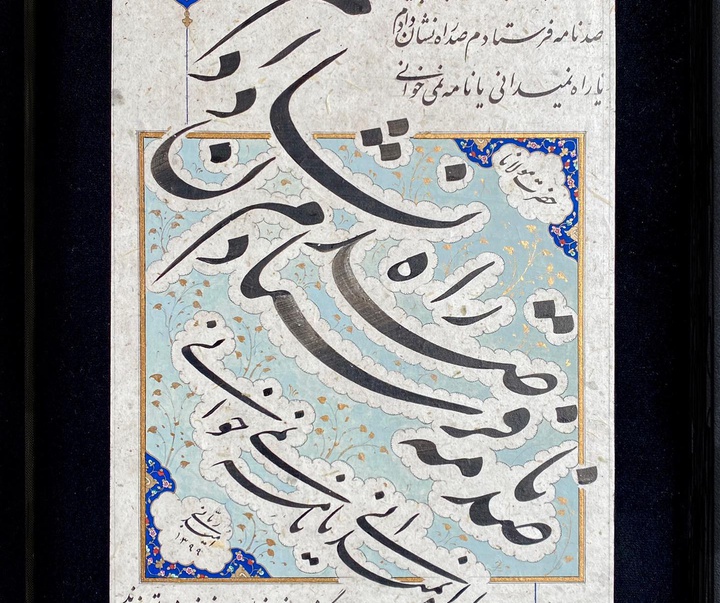 صد نامه فرستادم صد راه نشان دادم
یا راه نمیدانی یا نامه نمی خوانی
حضرت مولانا
صد نامه فرستادم
صد راه نشان دادم
یا راه نمیدانی
یا نامه نمی خوانی
۱۳۹۹